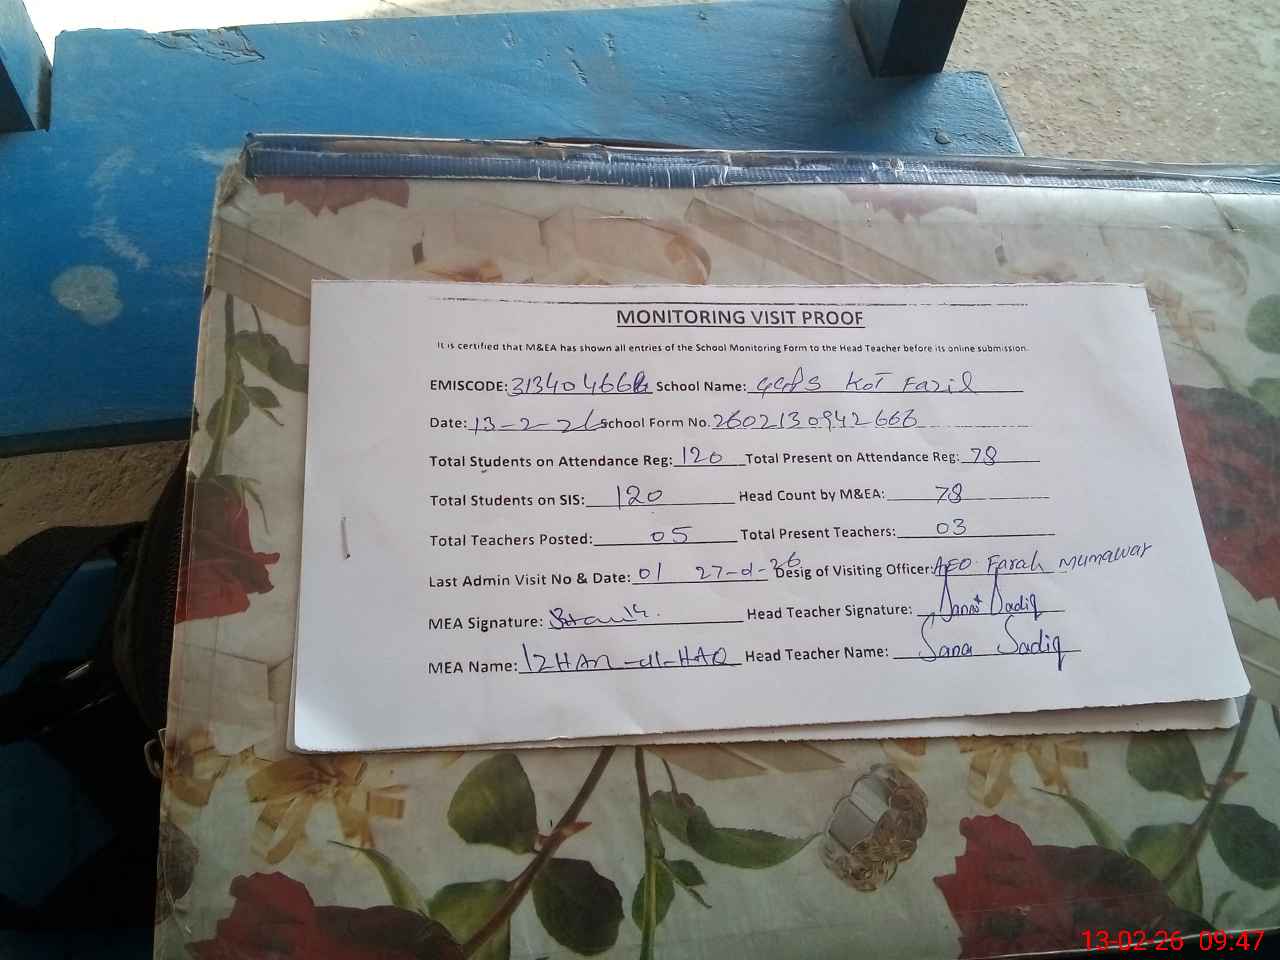 MONITORING VISIT PROOF
It is certified that M&EA has shown all entries of the School Monitoring Form to the Head Teacher before its online submission.
EMISCODE: School Name: GGPS KOT Fazil
Date: 13-2-26 School Form No. 2602130942666
Total Students on Attendance Reg: 120 Total Present on Attendance Reg: 78
Total Students on SIS: 120 Head Count by M&EA: 78
Total Teachers Posted: 05 Total Present Teachers: 03
Last Admin Visit No & Date: 01 27-1-26 Desig of Visiting Officer: AEO Farah Munawar
MEA Signature: Head Teacher Signature: Sana Sadiq
MEA Name: IZHAR-ul-HAQ Head Teacher Name: Sana Sadiq
13-02-26 09:47